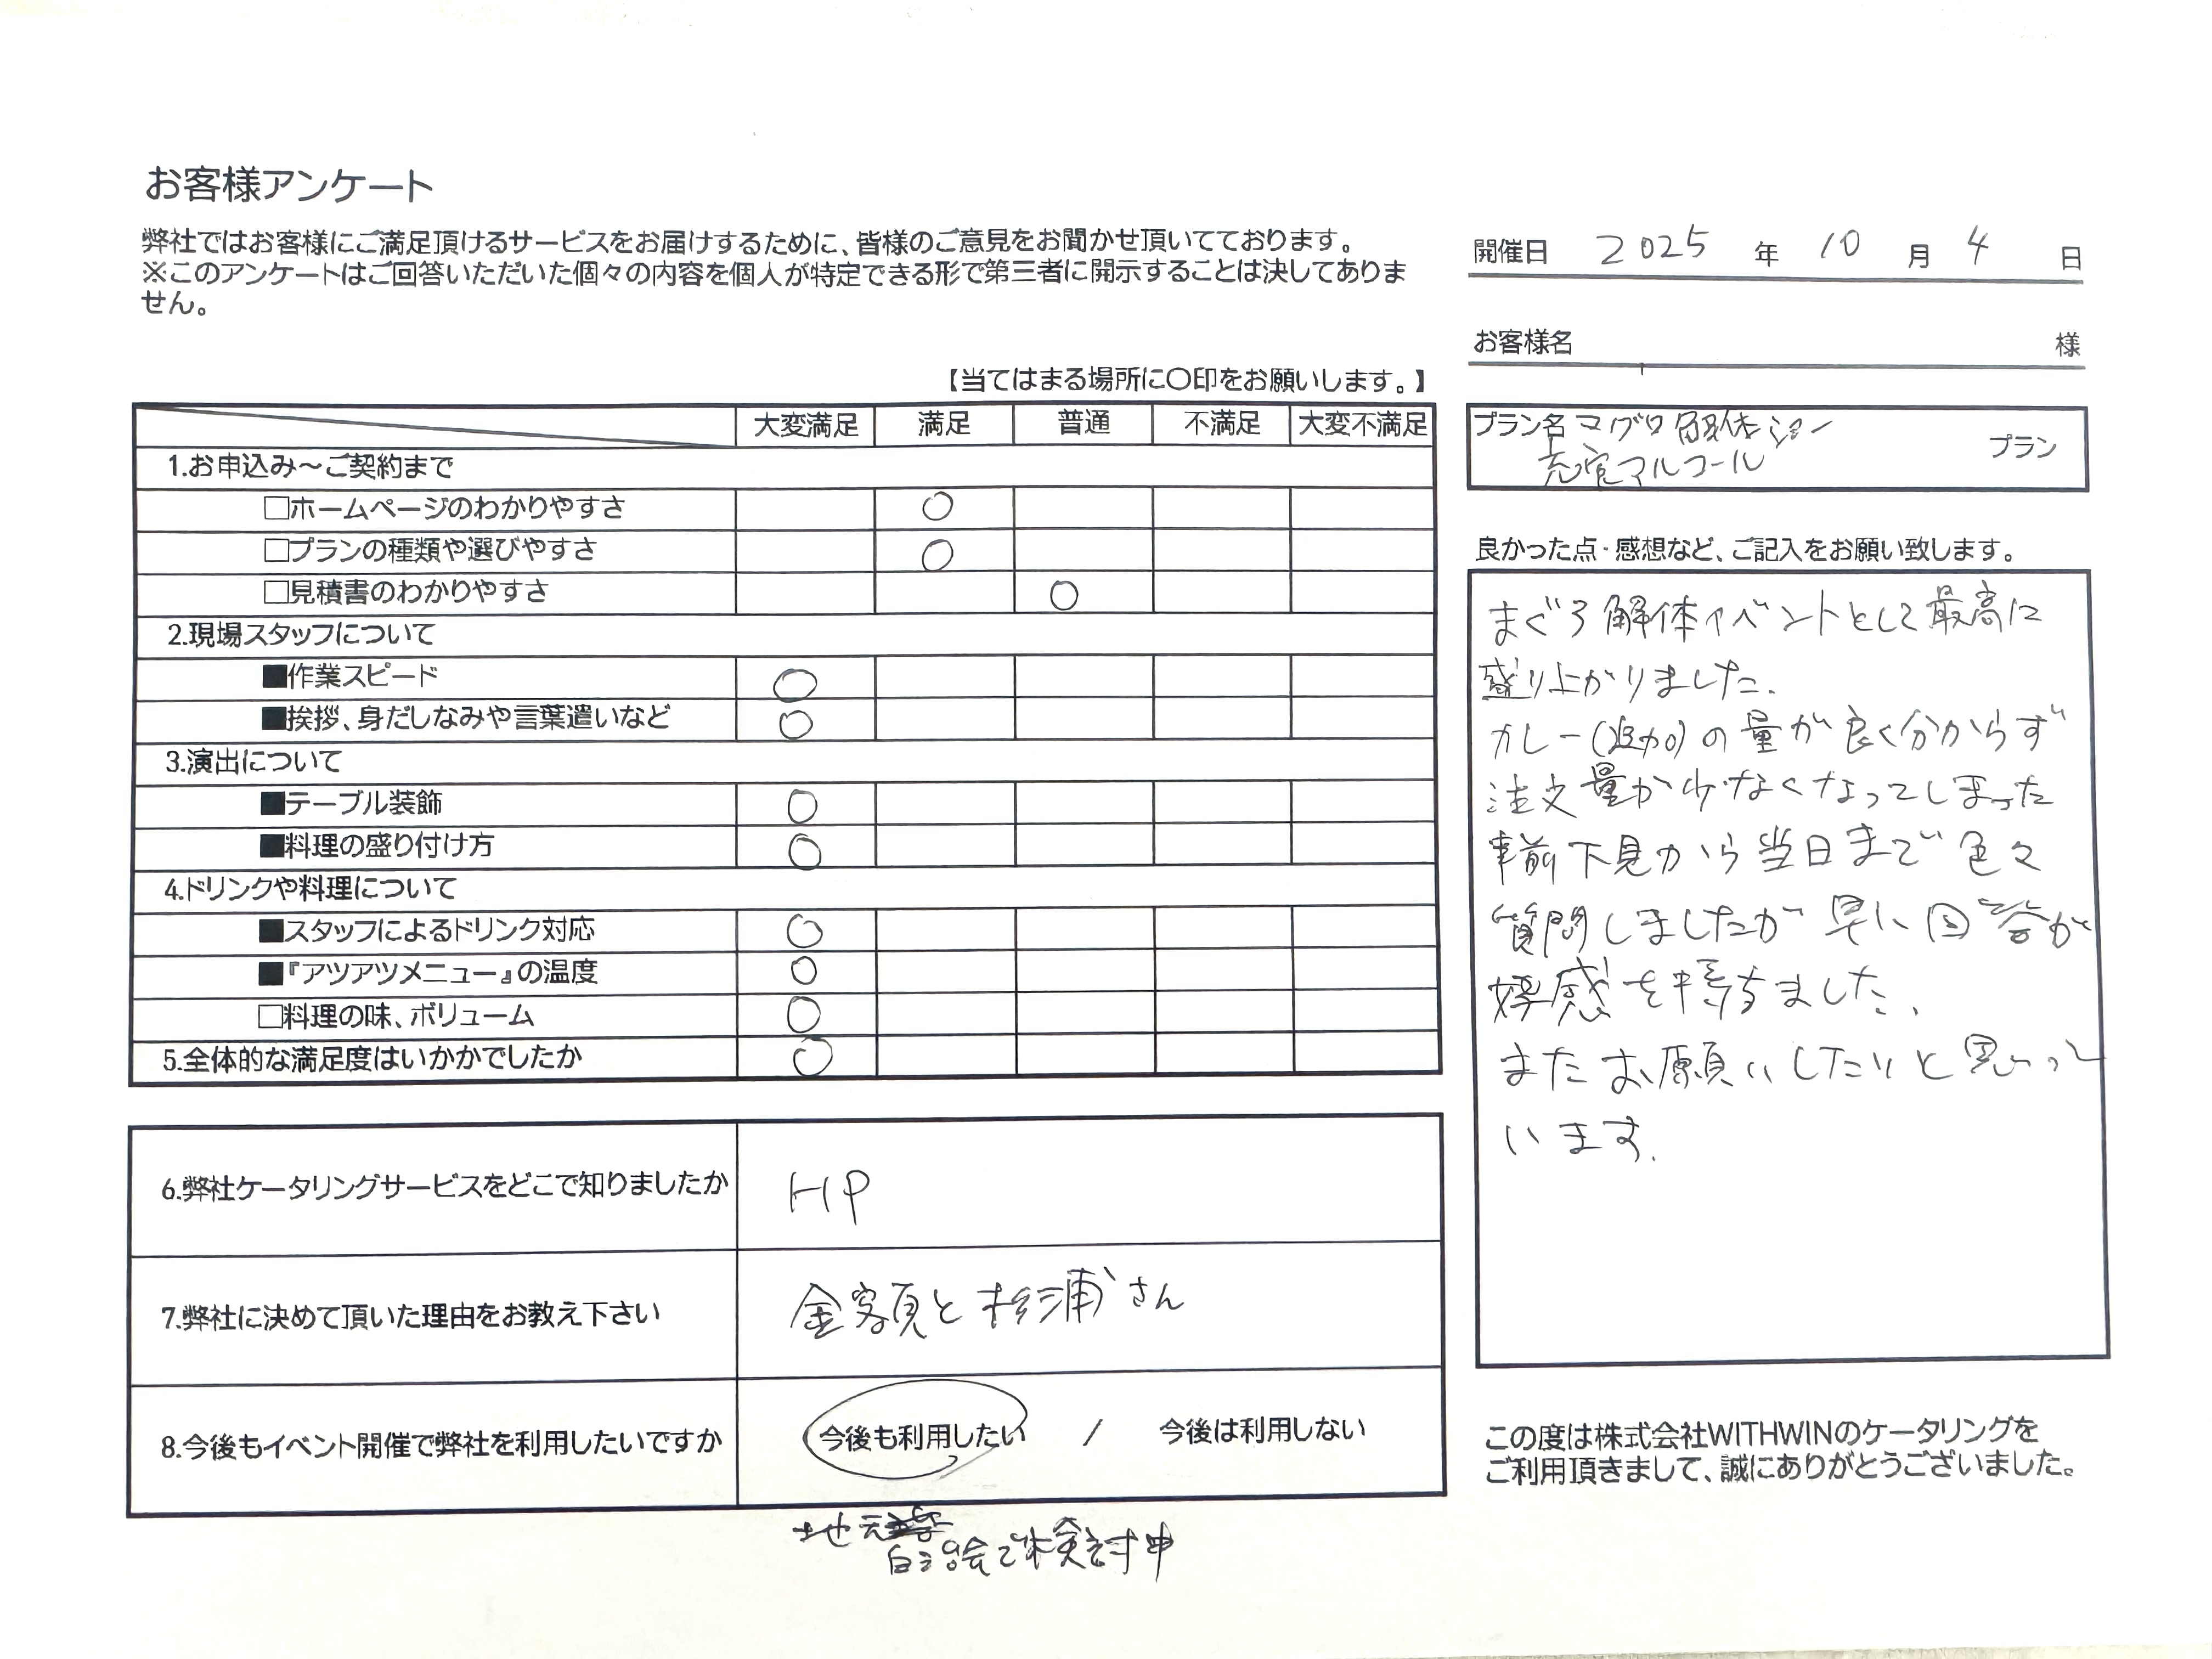 お客様アンケート
弊社ではお客様にご満足頂けるサービスをお届けするために、皆様のご意見をお聞かせ頂いてております。
※このアンケートはご回答いただいた個々の内容を個人が特定できる形で第三者に開示することは決してありま
せん。
【当てはまる場所に〇印をお願いします。】
大変満足 満足 普通 不満足 大変不満足
1.お申込み～ご契約まで
□ホームページのわかりやすさ ○
□プランの種類や選びやすさ ○
□見積書のわかりやすさ ○
2.現場スタッフについて
■作業スピード ○
■挨拶、身だしなみや言葉遣いなど ○
3.演出について
■テーブル装飾 ○
■料理の盛り付け方 ○
4.ドリンクや料理について
■スタッフによるドリンク対応 ○
■『アツアツメニュー』の温度 ○
□料理の味、ボリューム ○
5.全体的な満足度はいかかでしたか ○
6.弊社ケータリングサービスをどこで知りましたか HP
7.弊社に決めて頂いた理由をお教え下さい 金額と杉浦さん
8.今後もイベント開催で弊社を利用したいですか 今後も利用したい / 今後は利用しない
地元
自治会で検討中
開催日 2025 年 10 月 4 日
お客様名 様
プラン名 マグロ解体ショー
アルコール プラン
良かった点・感想など、ご記入をお願い致します。
まぐろ解体イベントとして最高に
盛り上がりました.
カレー(追加)の量が良く分からず
注文量が少なくなってしまった
事前下見から当日まで色々
質問しましたが早い回答が
好感を持ちました.
またお願いしたいと思って
います.
この度は株式会社WITHWINのケータリングを
ご利用頂きまして、誠にありがとうございました。